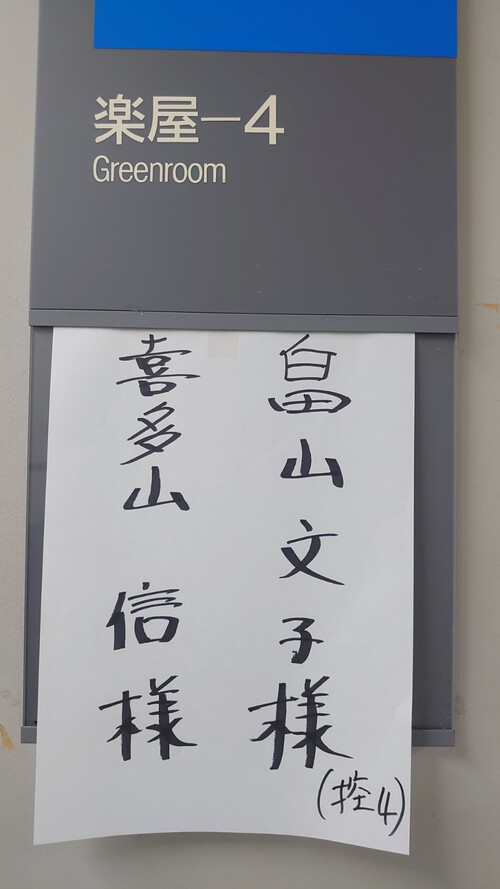 楽屋−4
Greenroom
畠山文子様
(控4)
喜多山 信様